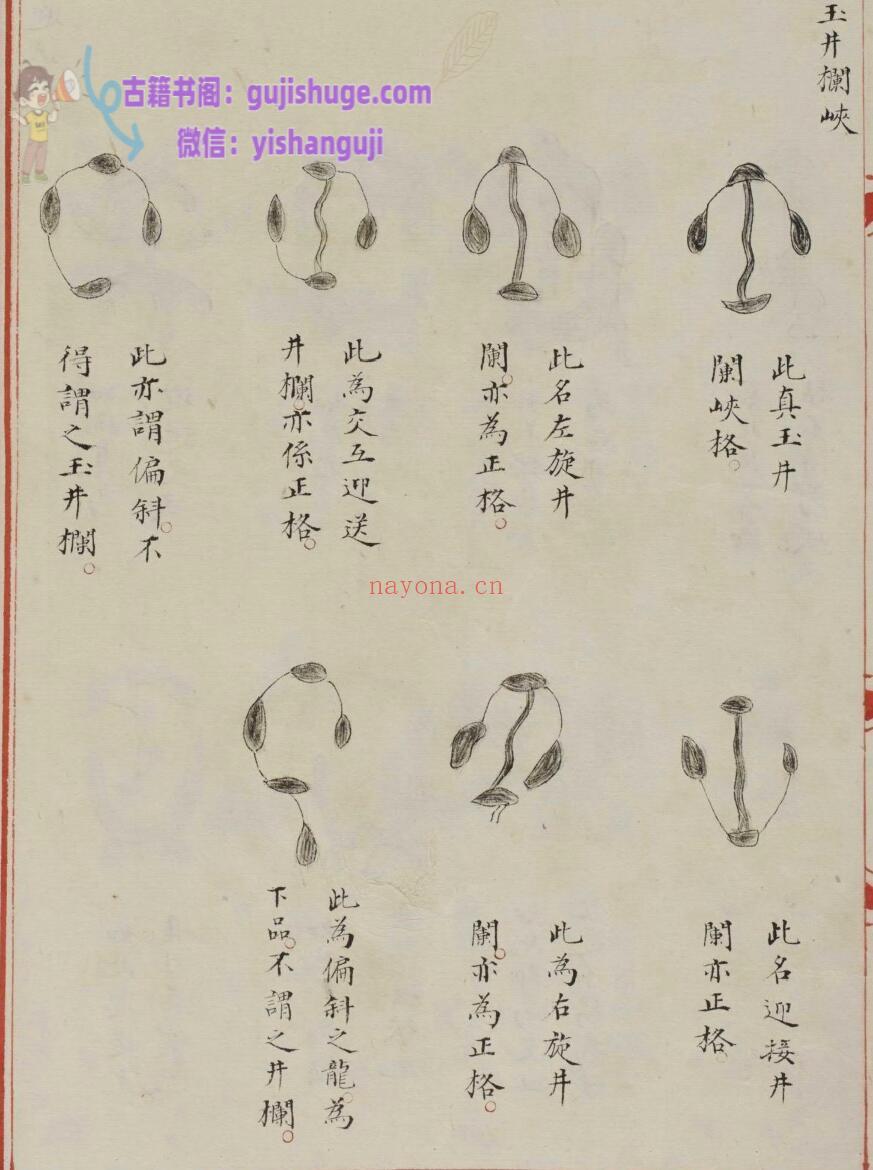 玉井欄峽
此真玉井
闌峽格。
此名左旋井
闌。亦為正格。
此為交互迎送
井欄。亦係正格。
此亦謂偏斜。不
得謂之玉井欄。
此名迎接井
闌亦正格。
此為右旋井
闌。亦為正格。
此為偏斜之龍。為
下品。不謂之井欄。
古籍书阁：gujishuge.com
微信：yishanguji
nayona.cn